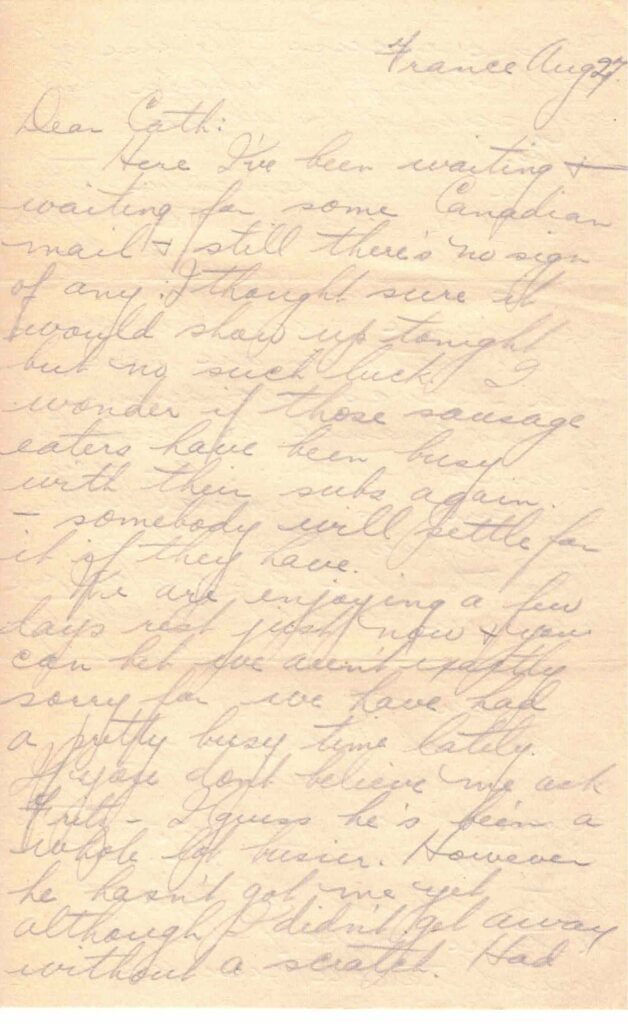 France Aug 27.
Dear Cath:
Here I've been waiting &
waiting for some Canadian
mail & still there's no sign
of any. I thought sure it
would show up tonight
but no such luck. I
wonder if those sausage
eaters have been busy
with their subs again.
- somebody will settle for
it if they have.
We are enjoying a few
days rest just now & you
can bet we aren't exactly
sorry for we have had
a pretty busy time lately.
If you don't believe me ask
Fritz - I guess he's been a
whole lot busier. However
he hasn't got me yet
although I didn't get away
without a scratch. Had